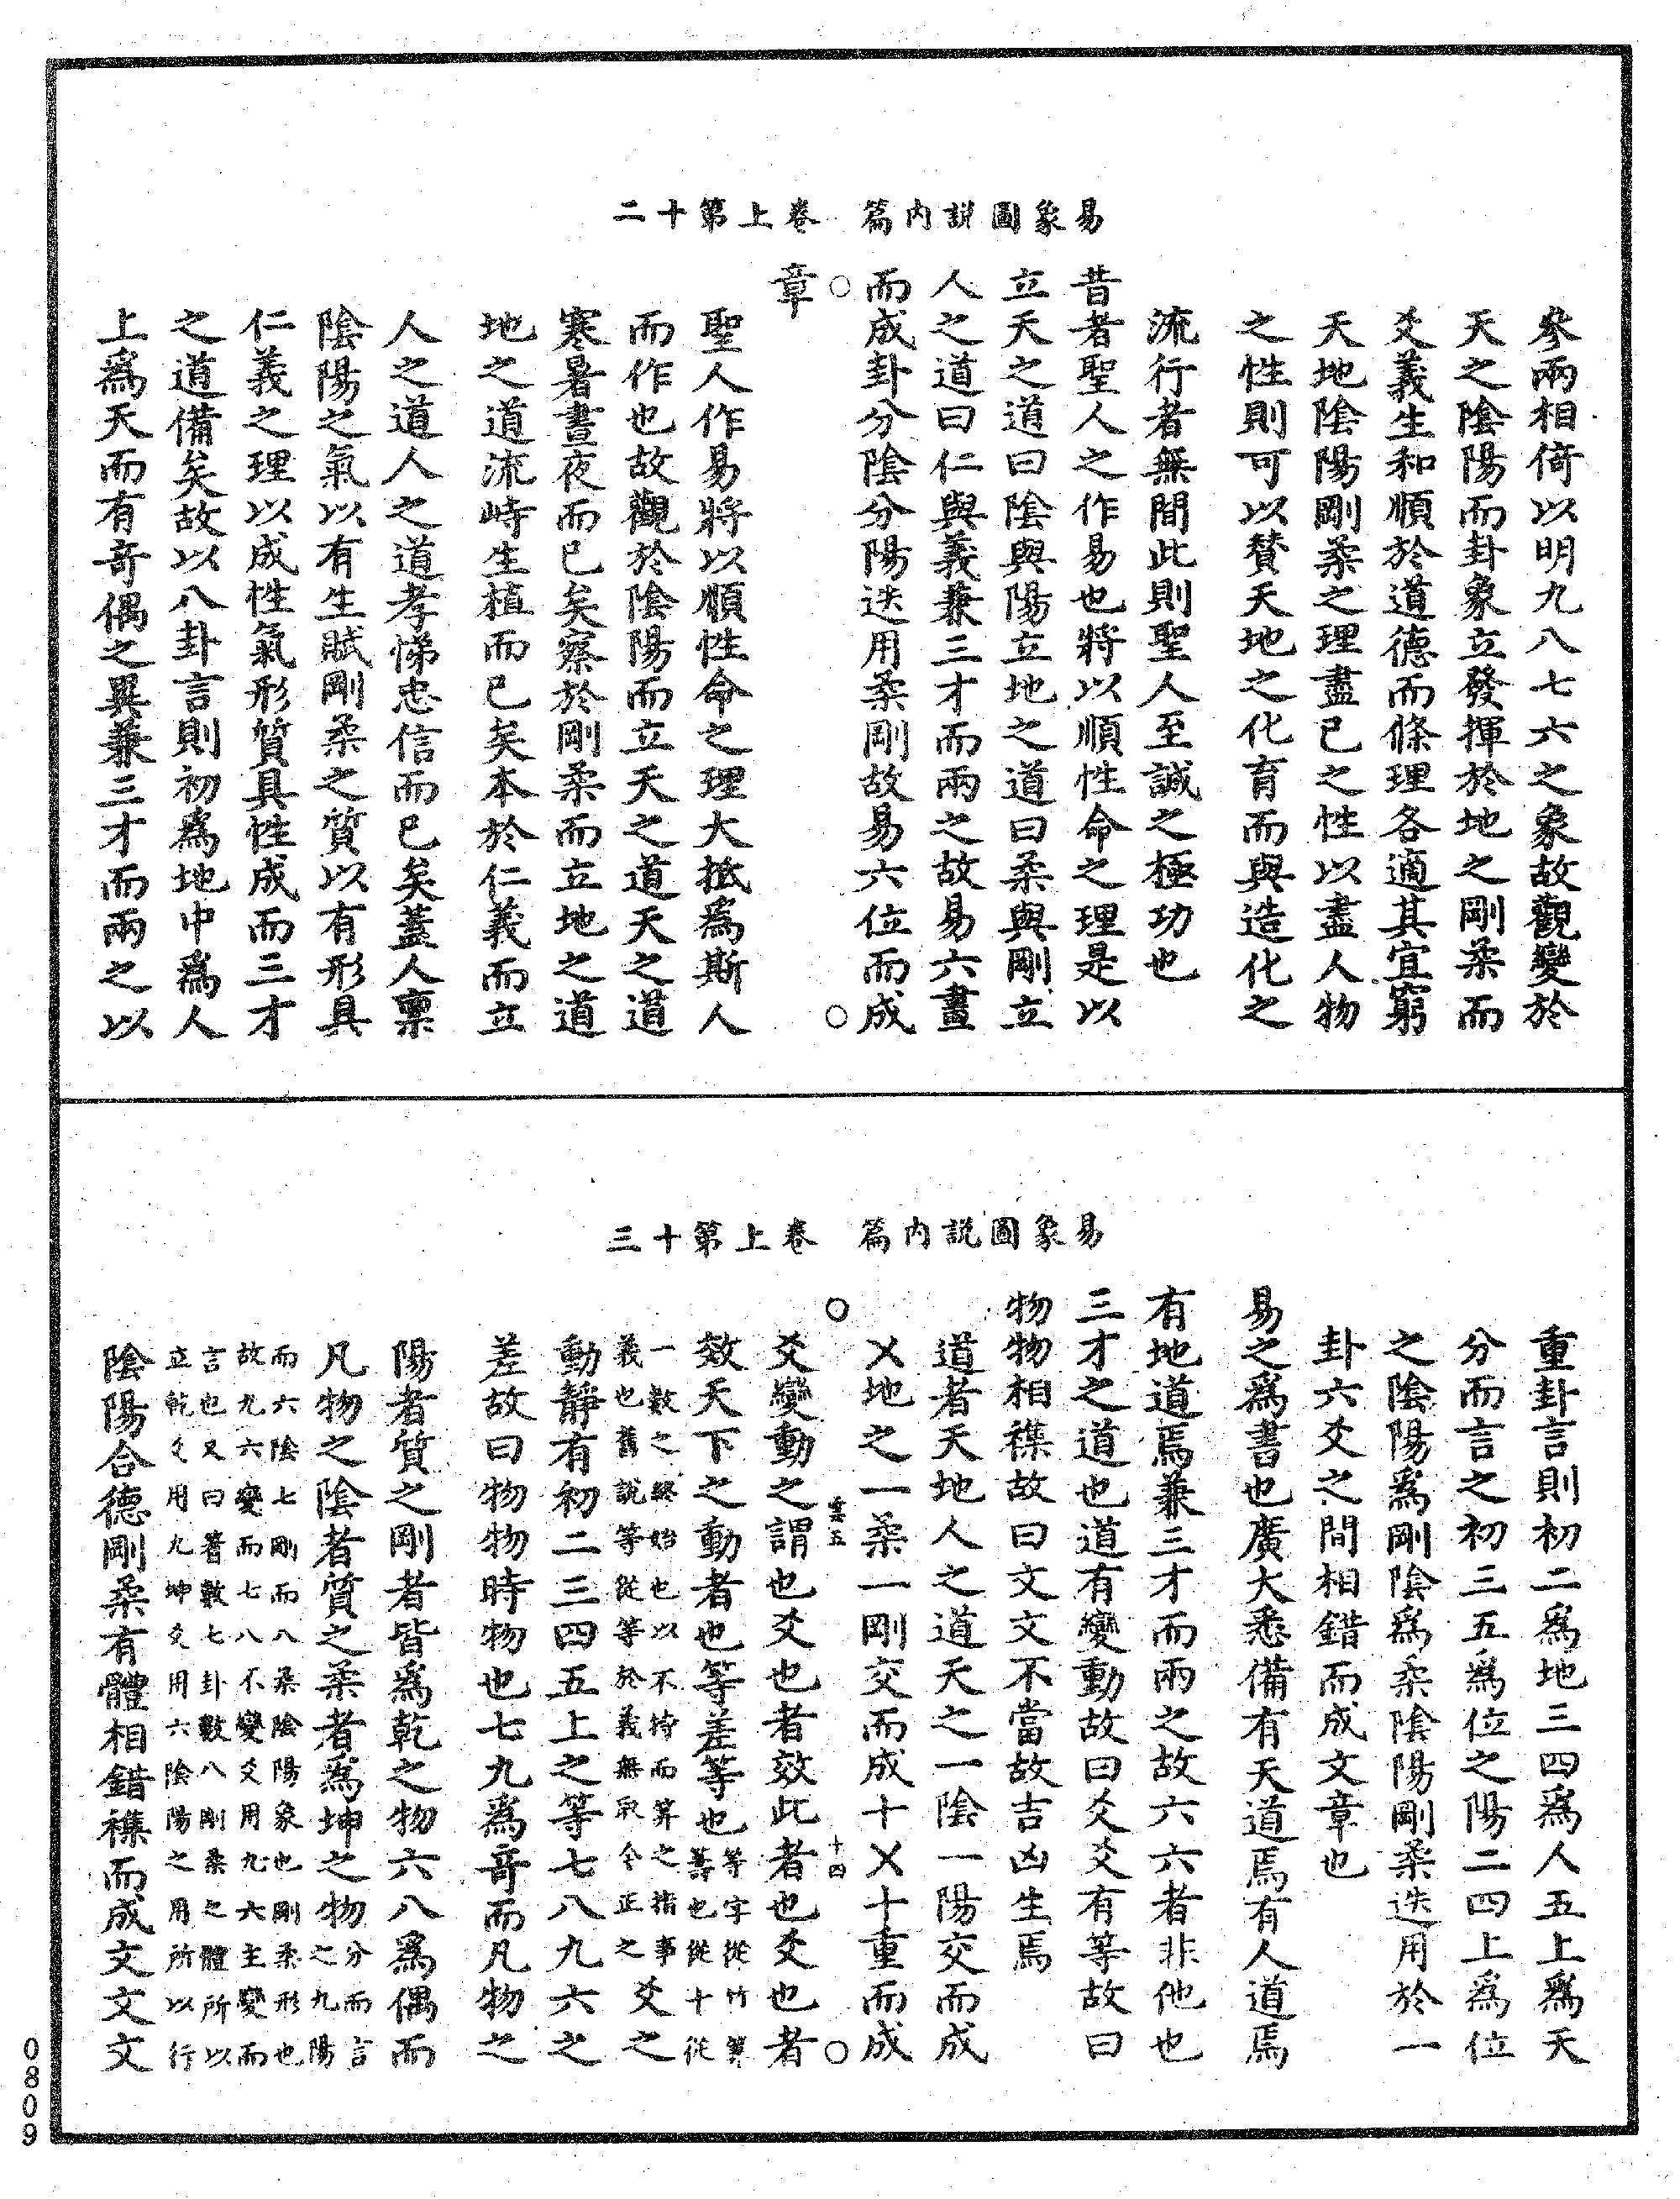 易象圖說內篇　卷上第十二
參兩相倚以明九八七六之象故觀變於
天之陰陽而卦象立發揮於地之剛柔而
爻義生和順於道德而條理各適其宜窮
天地陰陽剛柔之理盡已之性以盡人物
之性則可以贊天地之化育而與造化之
流行者無間此則聖人至誠之極功也
昔者聖人之作易也將以順性命之理是以
立天之道曰陰與陽立地之道曰柔與剛立
人之道曰仁與義兼三才而兩之故易六畫
而成卦分陰分陽迭用柔剛故易六位而成
○　○
章
聖人作易將以順性命之理大抵為斯人
而作也故觀於陰陽而立天之道天之道
寒暑晝夜而已矣察於剛柔而立地之道
地之道流峙生植而已矣本於仁義而立
人之道人之道孝悌忠信而已矣蓋人稟
陰陽之氣以有生賦剛柔之質以有形具
仁義之理以成性氣形質具性成而三才
之道備矣故以八卦言則初為地中為人
上為天而有奇偶之異兼三才而兩之以
易象圖說內篇　卷上第十三
重卦言則初二為地三四為人五上為天
分而言之初三五為位之陽二四上為位
之陰陽為剛陰為柔陰陽剛柔迭用於一
卦六爻之間相錯而成文章也
易之為書也廣大悉備有天道焉有人道焉
有地道焉兼三才而兩之故六六者非他也
三才之道也道有變動故曰爻爻有等故曰
物物相襍故曰文文不當故吉凶生焉
道者天地人之道天之一陰一陽交而成
㐅地之一柔一剛交而成十㐅十重而成
○　雲五　十四　○
爻變動之謂也爻也者效此者也爻也者
效天下之動者也等差等也等字從竹筭
籌也從十從
一數之終始也以不持而筭之指事
義也舊說等從等於義無取今正之爻之
動靜有初二三四五上之等七八九六之
差故曰物物時物也七九為奇而凡物之
陽者質之剛者皆為乾之物六八為偶而
凡物之陰者質之柔者為坤之物分而言
之九陽
而六陰七剛而八柔陰陽象也剛柔形也
故九六變而七八不變爻用九六主變而
言也又曰蓍數七卦數八剛柔之體所以
立乾爻用九坤爻用六陰陽之用所以行
陰陽合德剛柔有體相錯襍而成文文文
0809